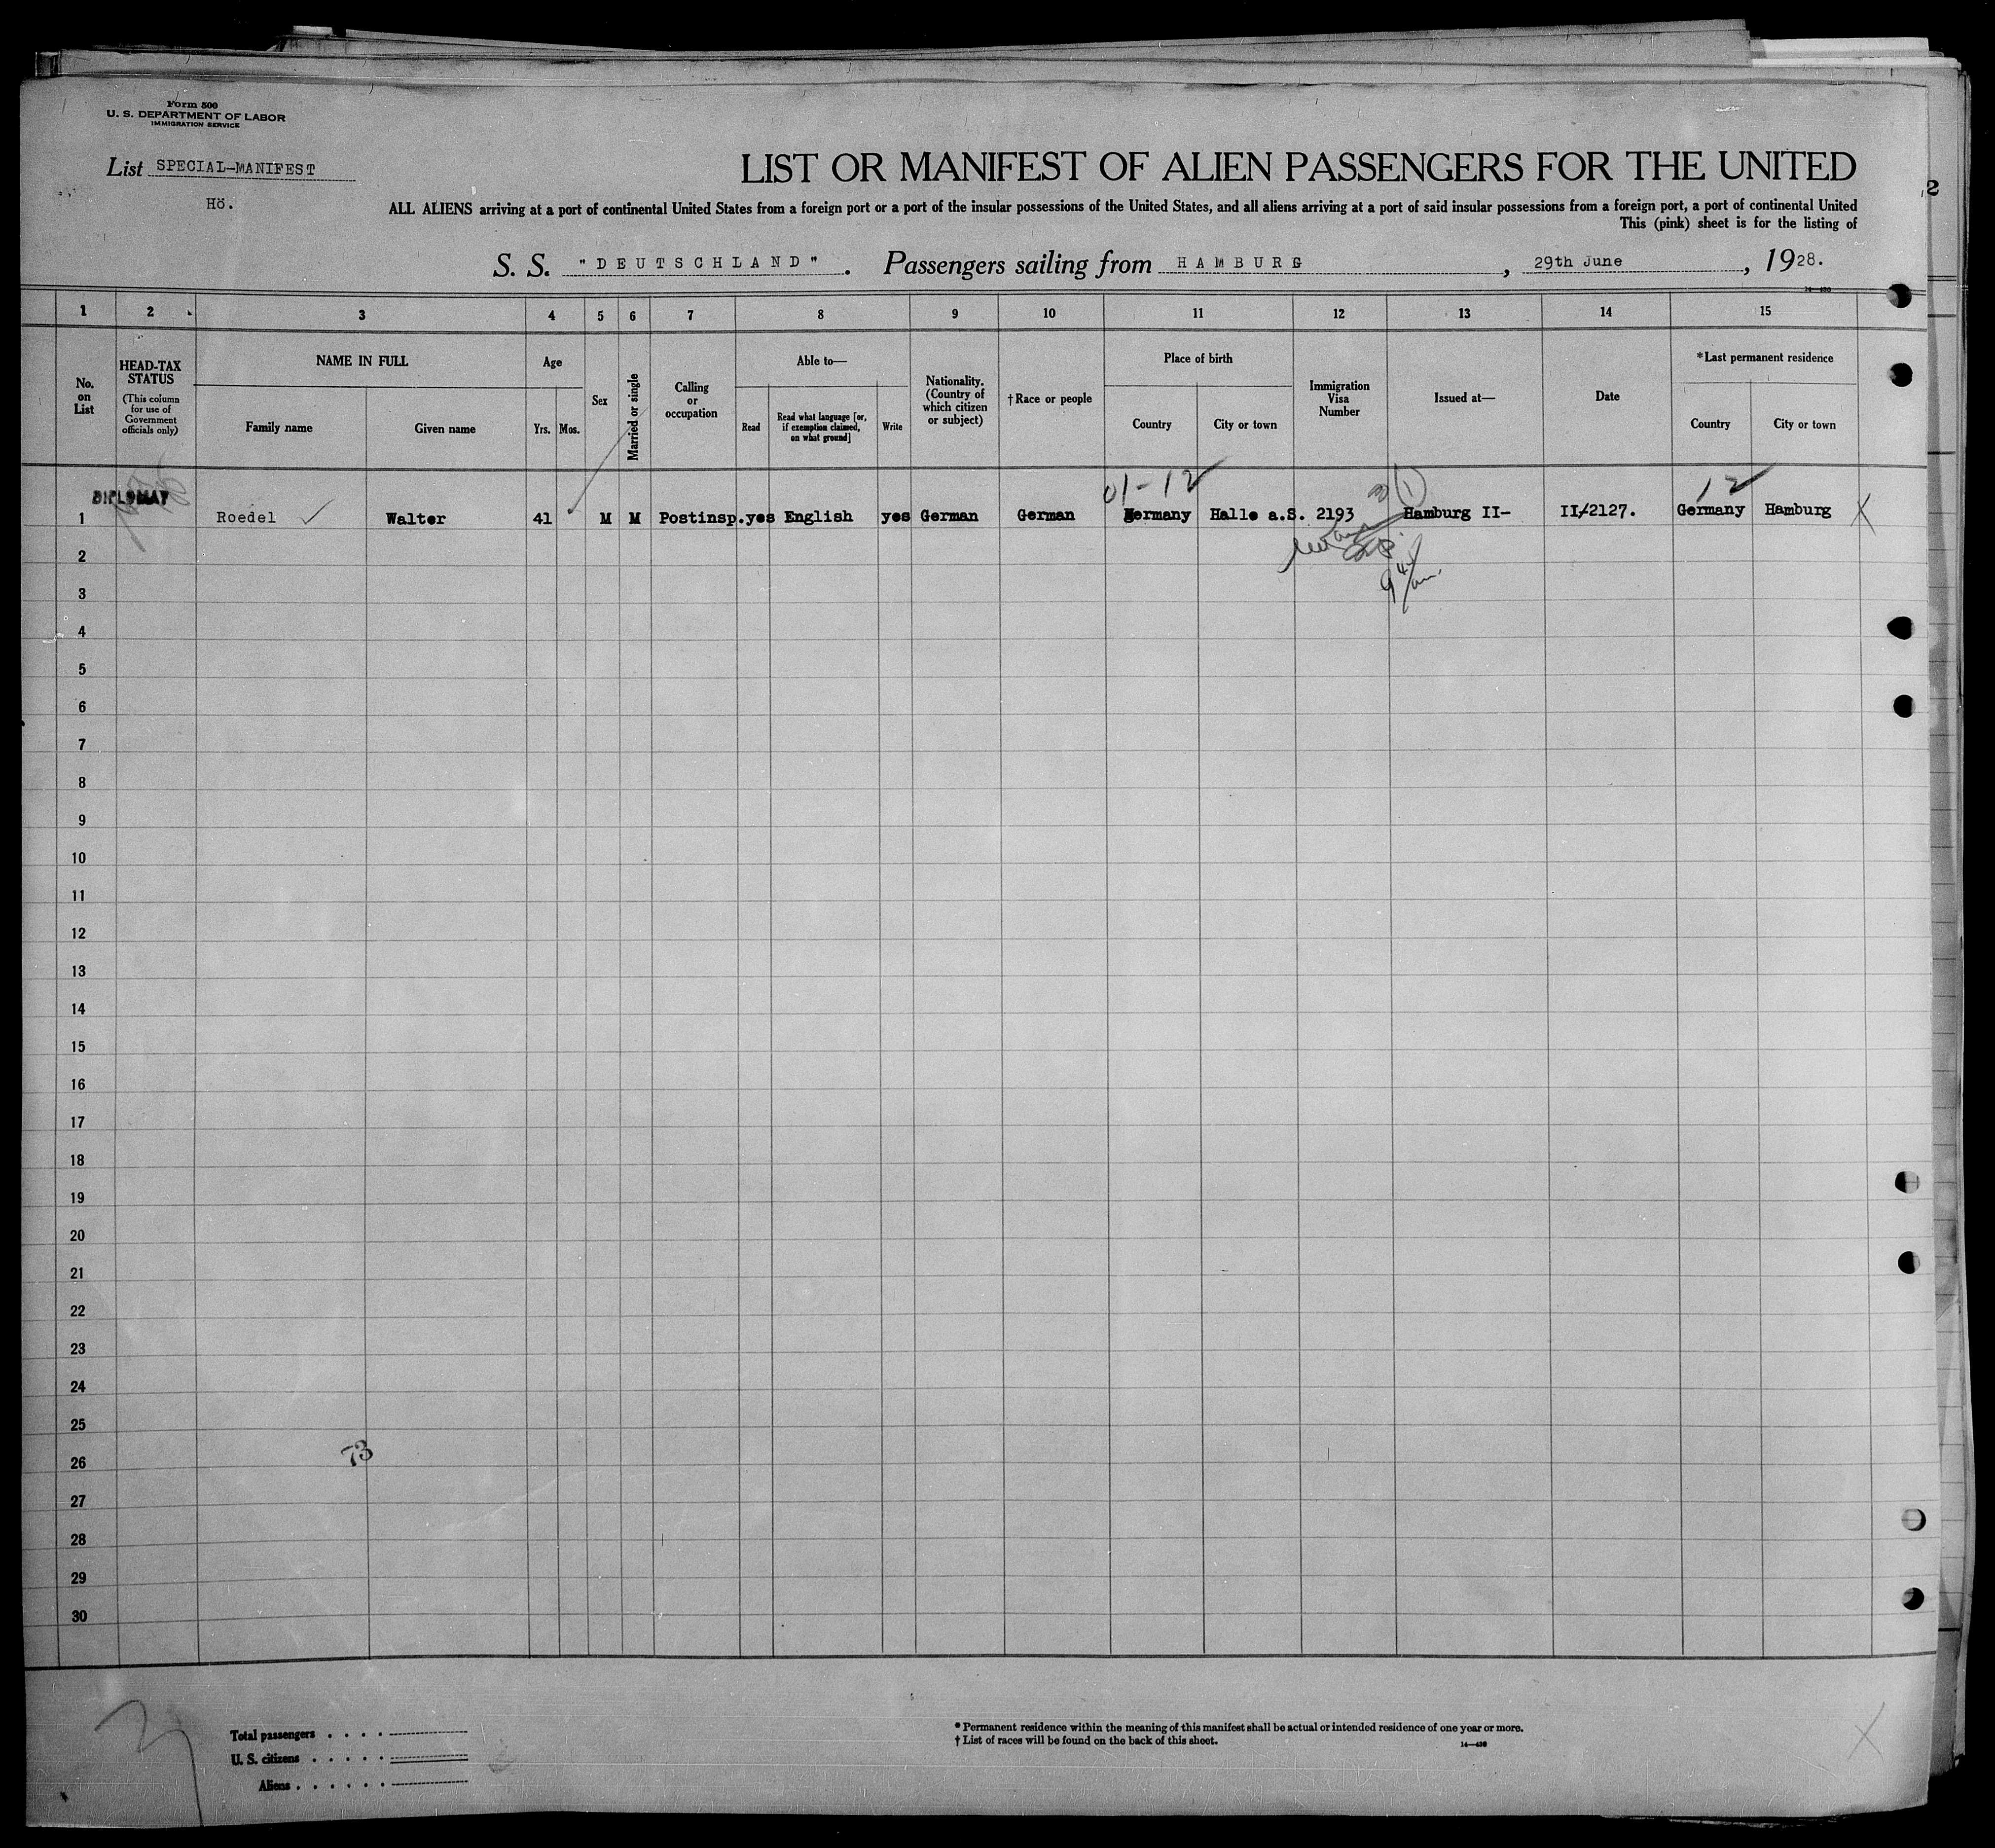 Form 500
U. S. DEPARTMENT OF LABOR
IMMIGRATION SERVICE
List SPECIAL-MANIFEST
Hö.
LIST OR MANIFEST OF ALIEN PASSENGERS FOR THE UNITED
ALL ALIENS arriving at a port of continental United States from a foreign port or a port of the insular possessions of the United States, and all aliens arriving at a port of said insular possessions from a foreign port, a port of continental United
This (pink) sheet is for the listing of
S. S. "DEUTSCHLAND". Passengers sailing from HAMBURG, 29th June, 1928.
2
1 2 3 4 5 6 7 8 9 10 11 12 13 14 15
No. on List
HEAD-TAX STATUS
(This column for use of Government officials only)
NAME IN FULL
Family name
Given name
Age
Yrs.
Mos.
Sex
Married or single
Calling or occupation
Able to—
Read
Read what language [or, if exemption claimed, on what ground]
Write
Nationality. (Country of which citizen or subject)
†Race or people
Place of birth
Country
City or town
Immigration Visa Number
Issued at—
Date
*Last permanent residence
Country
City or town
01-12
1
12
DIPLOMAT
1 Roedel Walter 41 M M Postinsp. yes English yes German German Germany Halle a.S. 2193 Hamburg II- II/2127. Germany Hamburg X
2
3
4
5
6
7
8
9
10
11
12
13
14
15
16
17
18
19
20
21
22
23
24
25
73
26
27
28
29
30
Total passengers . . . .
U. S. citizens . . . . .
Aliens . . . . . .
* Permanent residence within the meaning of this manifest shall be actual or intended residence of one year or more.
† List of races will be found on the back of this sheet.
14—430
X